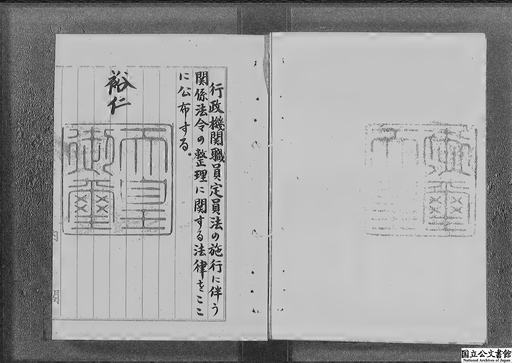 行政機関職員定員法の施行に伴う
関係法令の整理に関する法律をここ
に公布する。
裕仁
天皇
御璽
国立公文書館
National Archives of Japan